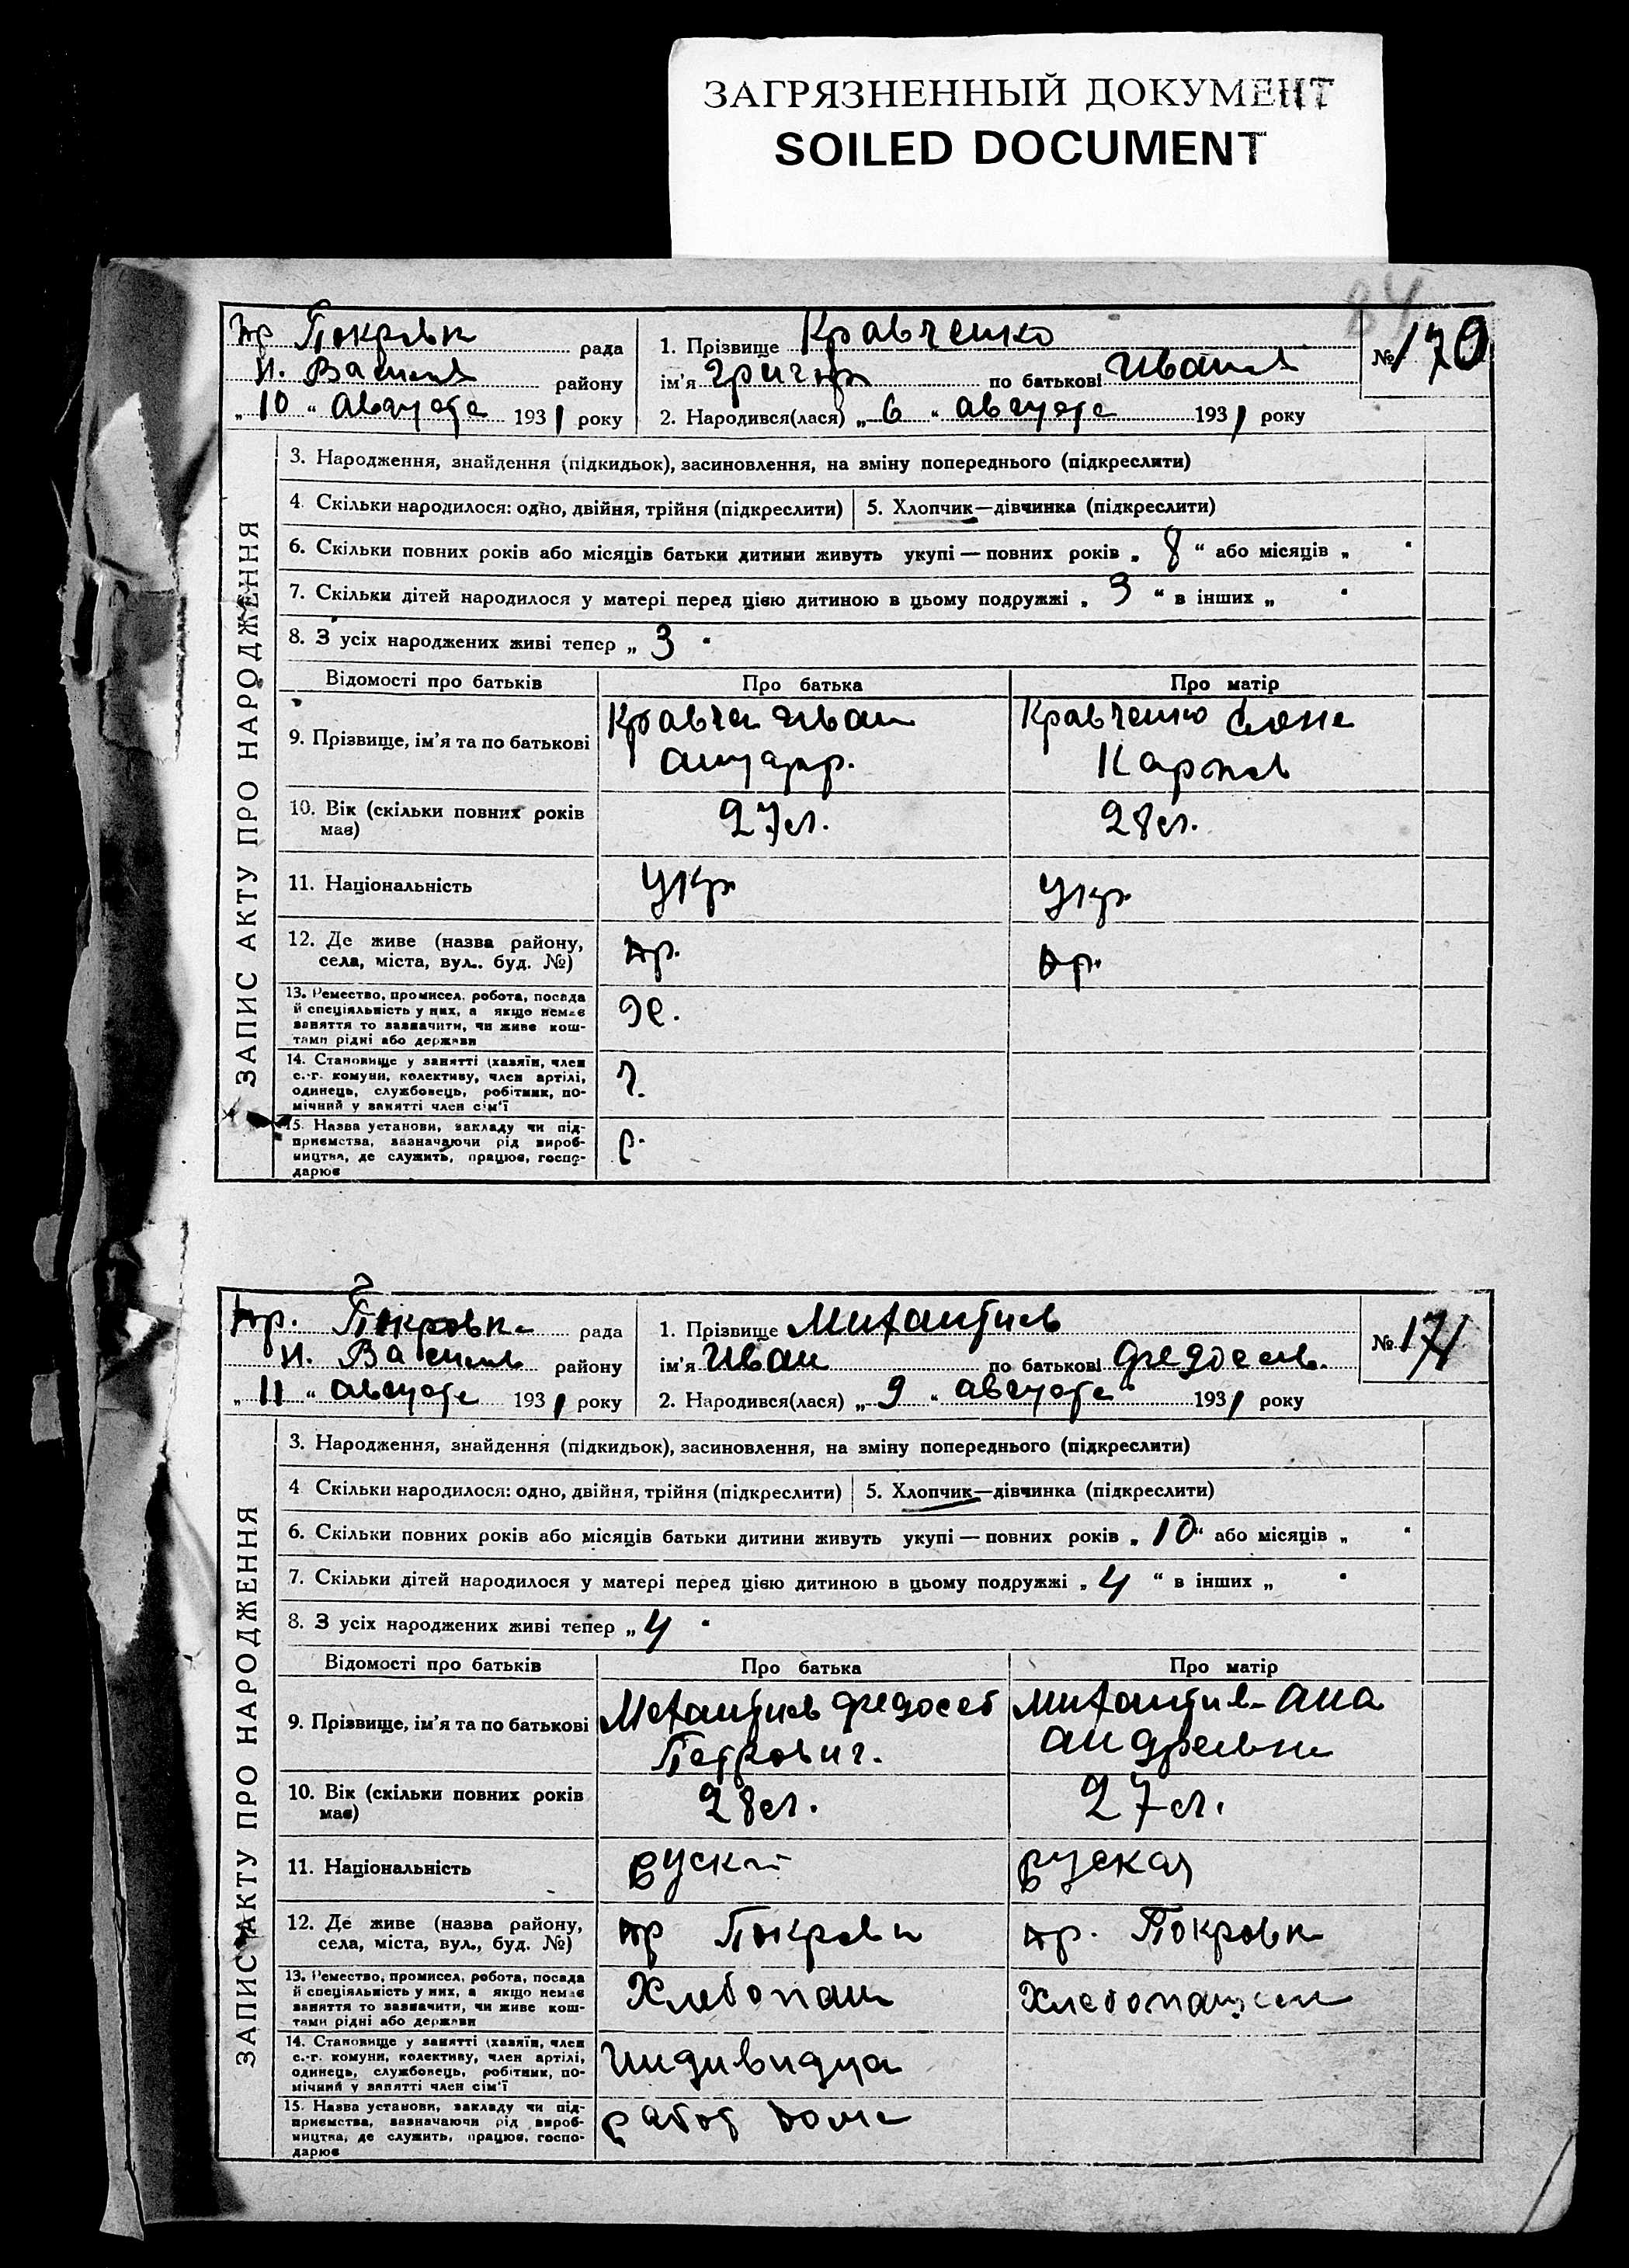 ЗАГРЯЗНЕННЫЙ ДОКУМЕНТ
SOILED DOCUMENT
84
Покровк рада
Н. Васил району
„ 10 “ августа 1931 року
1. Прізвище Кравченко
ім'я Григор по батькові Иванов
2. Народився(лася) „ 6 “ августа 1931 року
№ 170
ЗАПИС АКТУ ПРО НАРОДЖЕННЯ
3. Народження, знайдення (підкидьок), засиновлення, на зміну попереднього (підкреслити)
4 Скільки народилося: одно, двійня, трійня (підкреслити) 5. Хлопчик—дівчинка (підкреслити)
6. Скільки повних років або місяців батьки дитини живуть укупі — повних років „ 8 “ або місяців „ “
7. Скільки дітей народилося у матері перед цією дитиною в цьому подружжі „ 3 “ в інших „ “
8. З усіх народжених живі тепер „ 3 “
Відомості про батьків Про батька Про матір
9. Прізвище, ім'я та по батькові
Кравчен Иван
Кравченко
Карпов
10. Вік (скільки повних років
має)
27 л.
28 л.
11. Національність
Укр
Укр
12. Де живе (назва району,
села, міста, вул., буд. №)
13. Ремество, промисел, робота, посада
й спеціяльність у них, а якщо немає
заняття то зазначити, чи живе кош-
тами рідні або держави
14. Становище у занятті (хазяїн, член
с.-г. комуни, колективу, член артілі,
одинець, службовець, робітник, по-
мічний у занятті член сім'ї
15. Назва установи, закладу чи під-
приємства, зазначаючи рід вироб-
ництва, де служить, працює, госпо-
дарює
р.
Покровка рада
Н. Васил району
„ 11 “ августа 1931 року
1. Прізвище
ім'я Иван по батькові Федосеев.
2. Народився(лася) „ 9 “ августа 1931 року
№ 171
ЗАПИС АКТУ ПРО НАРОДЖЕННЯ
3. Народження, знайдення (підкидьок), засиновлення, на зміну попереднього (підкреслити)
4 Скільки народилося: одно, двійня, трійня (підкреслити) 5. Хлопчик—дівчинка (підкреслити)
6. Скільки повних років або місяців батьки дитини живуть укупі — повних років „ 10 “ або місяців „ “
7. Скільки дітей народилося у матері перед цією дитиною в цьому подружжі „ 4 “ в інших „ “
8. З усіх народжених живі тепер „ 4 “
Відомості про батьків Про батька Про матір
9. Прізвище, ім'я та по батькові
Федосей
Петрович.
Ана
Андреевна
10. Вік (скільки повних років
має)
28 л.
27 л.
11. Національність
руский
руская
12. Де живе (назва району,
села, міста, вул., буд. №)
Покровк
Покровк
13. Ремество, промисел, робота, посада
й спеціяльність у них, а якщо немає
заняття то зазначити, чи живе кош-
тами рідні або держави
Хлебопаш
14. Становище у занятті (хазяїн, член
с.-г. комуни, колективу, член артілі,
одинець, службовець, робітник, по-
мічний у занятті член сім'ї
Индивидуа
15. Назва установи, закладу чи під-
приємства, зазначаючи рід вироб-
ництва, де служить, працює, госпо-
дарює
работ дома